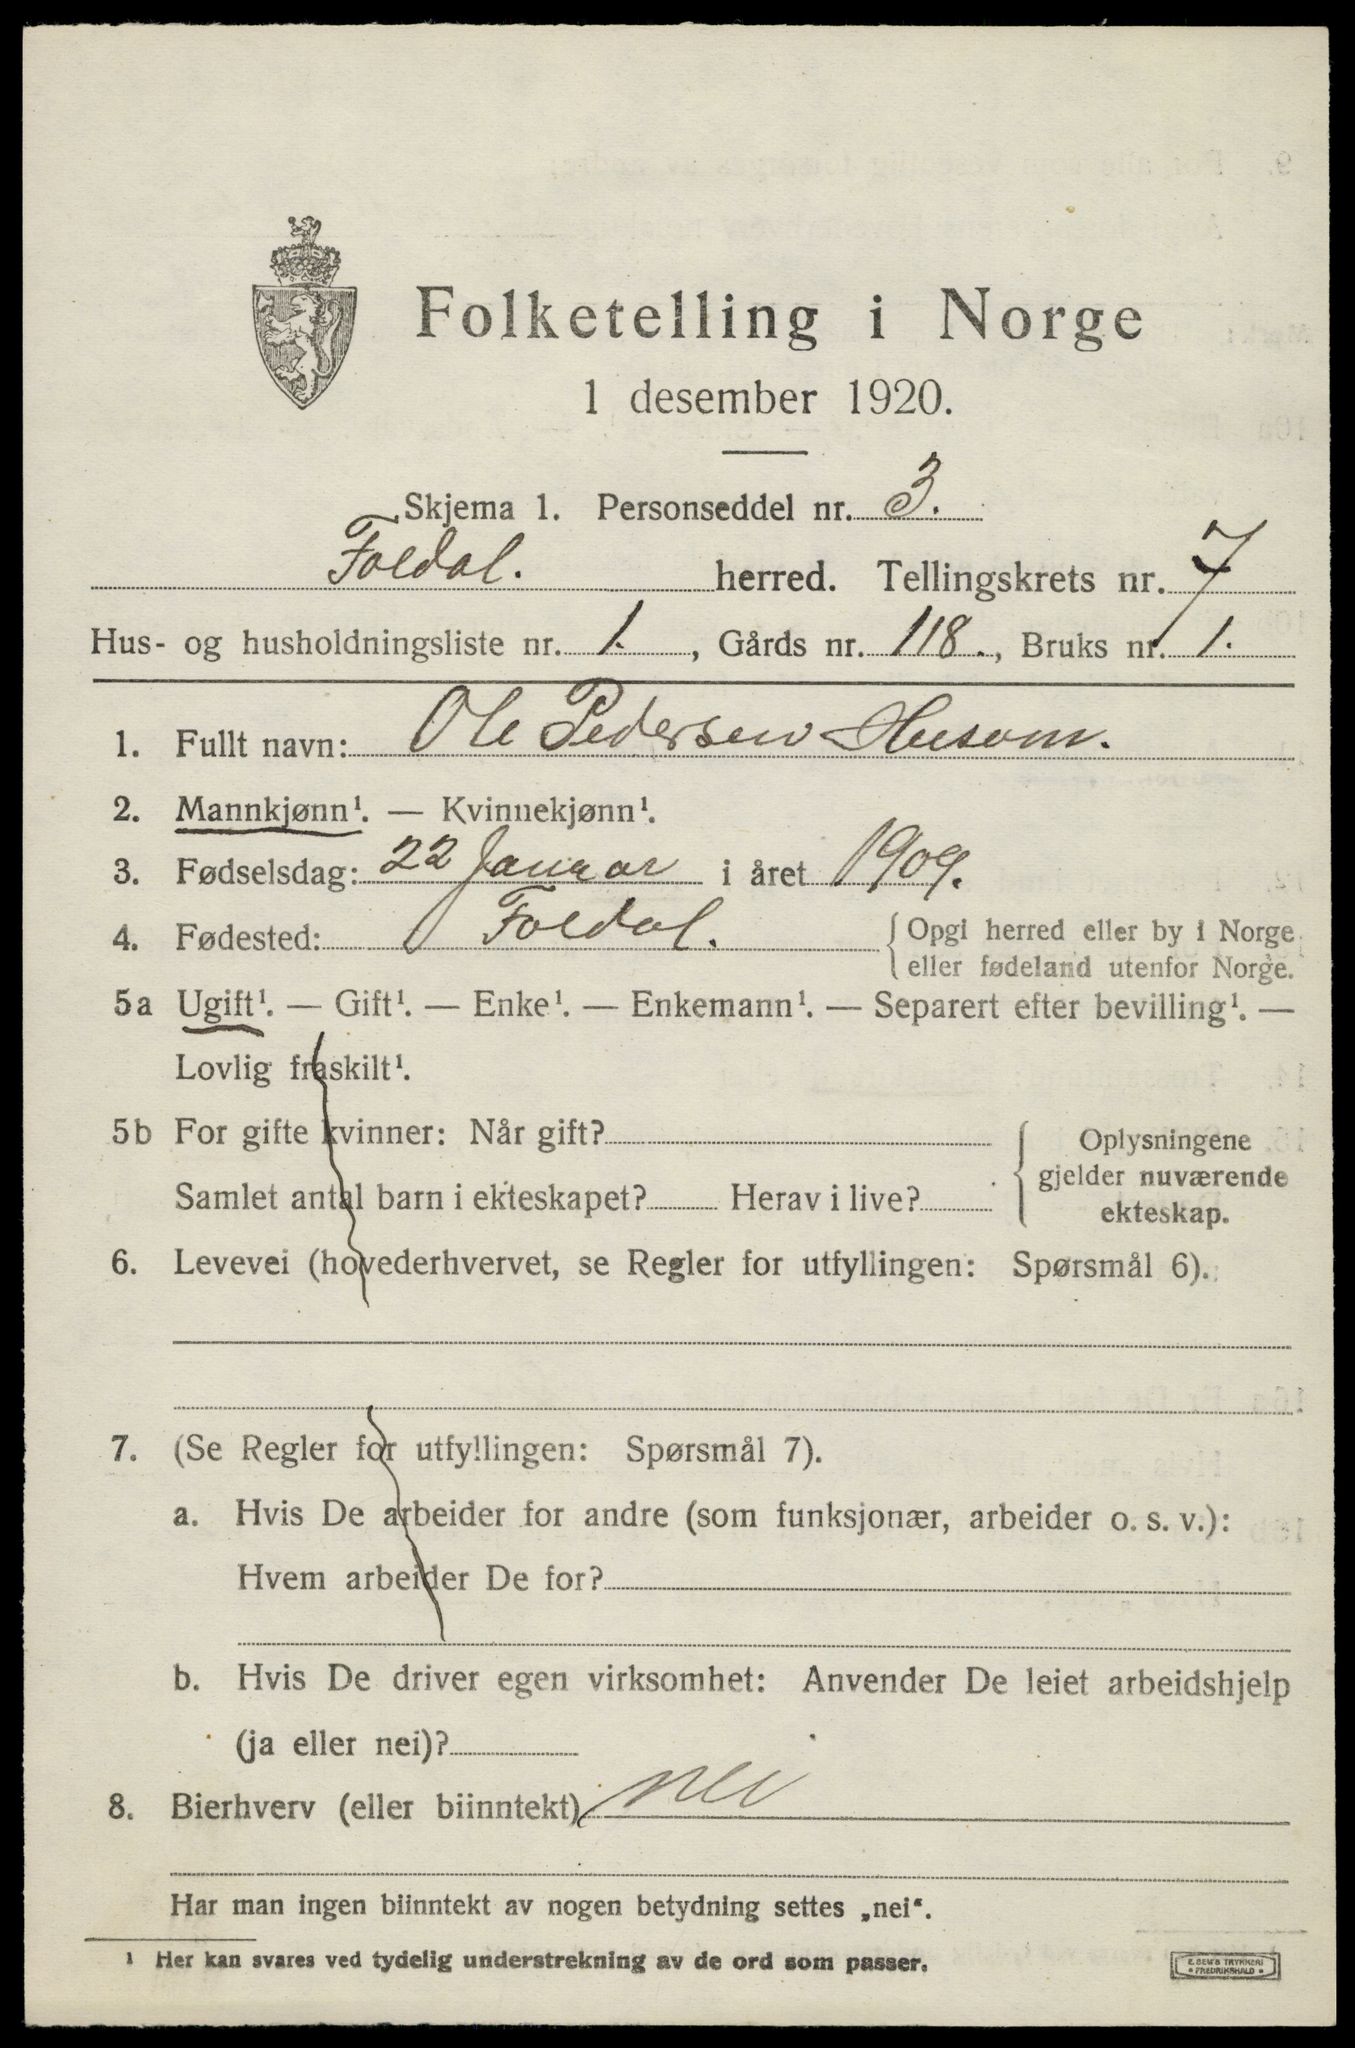 Folketelling i Norge
1 desember 1920.
Skjema 1. Personseddel nr. 3.
Foldal. herred. Tellingskrets nr. 7
Hus- og husholdningsliste nr. 1. , Gårds nr. 118., Bruks nr. 1.
1. Fullt navn: Ole Pedersen Husom.
2. Mannkjønn¹. — Kvinnekjønn¹.
3. Fødselsdag: 22 Januar i året 1909.
4. Fødested: Foldal. { Opgi herred eller by i Norge
eller fødeland utenfor Norge.
5a Ugift¹. — Gift¹. — Enke¹. — Enkemann¹. — Separert efter bevilling¹. —
Lovlig fraskilt¹.
5b For gifte kvinner: Når gift?
Samlet antal barn i ekteskapet? Herav i live?
{ Oplysningene
gjelder nuværende
ekteskap.
6. Levevei (hovederhvervet, se Regler for utfyllingen: Spørsmål 6).
7. (Se Regler for utfyllingen: Spørsmål 7).
a. Hvis De arbeider for andre (som funksjonær, arbeider o. s. v.):
Hvem arbeider De for?
b. Hvis De driver egen virksomhet: Anvender De leiet arbeidshjelp
(ja eller nei)?
8. Bierhverv (eller biinntekt) nei
Har man ingen biinntekt av nogen betydning settes „nei“.
¹ Her kan svares ved tydelig understrekning av de ord som passer.
E. SEM'S TRYKKERI
• FREDRIKSHALD •